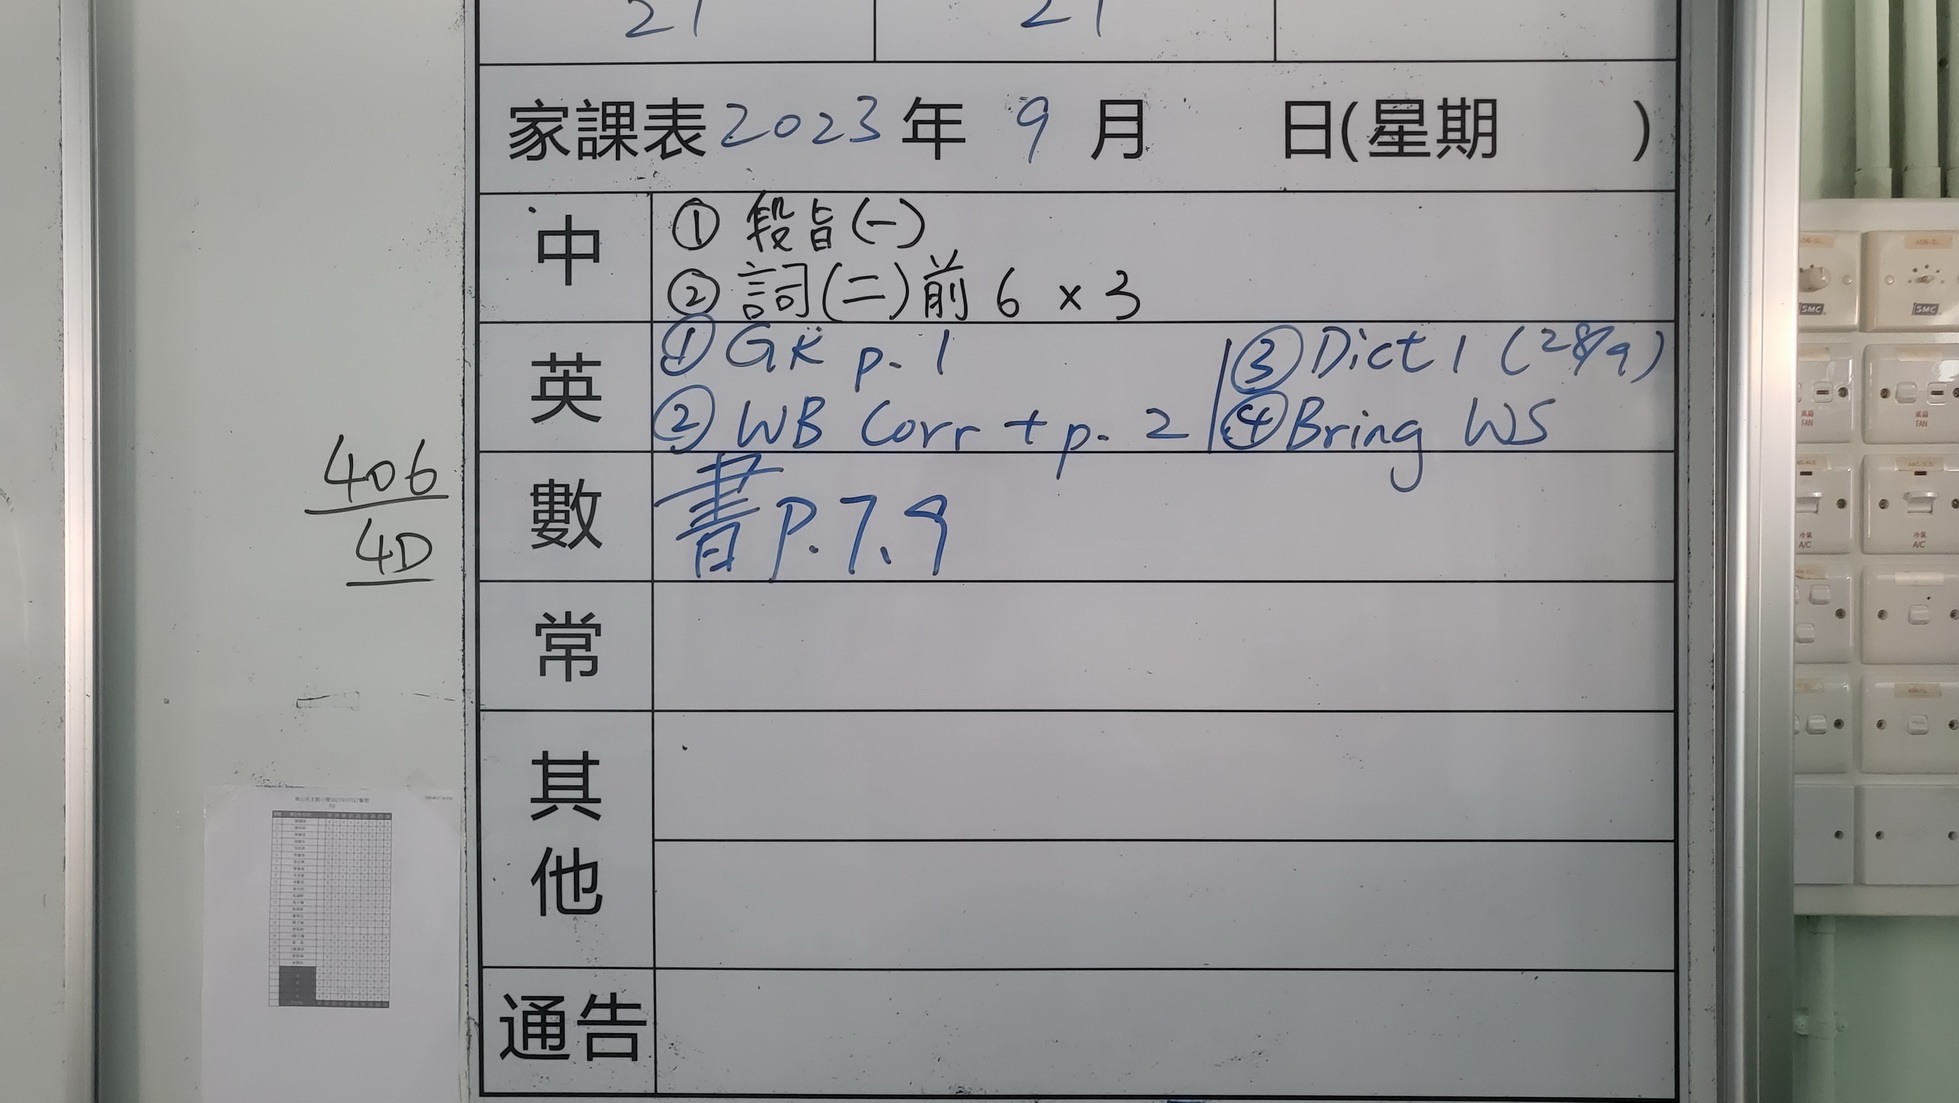 21 21
家課表 2023 年 9 月 日(星期 )
中 ① 段旨(一)
② 詞(二)前 6 × 3
英 ① GK p. 1 ③ Dict 1 (28/9)
② WB Corr + p. 2 ④ Bring WS
406
4D
數 書 P.7、9
常
其他
通告
SMC
SMC
FAN
FAN
冷氣
A/C
冷氣
A/C